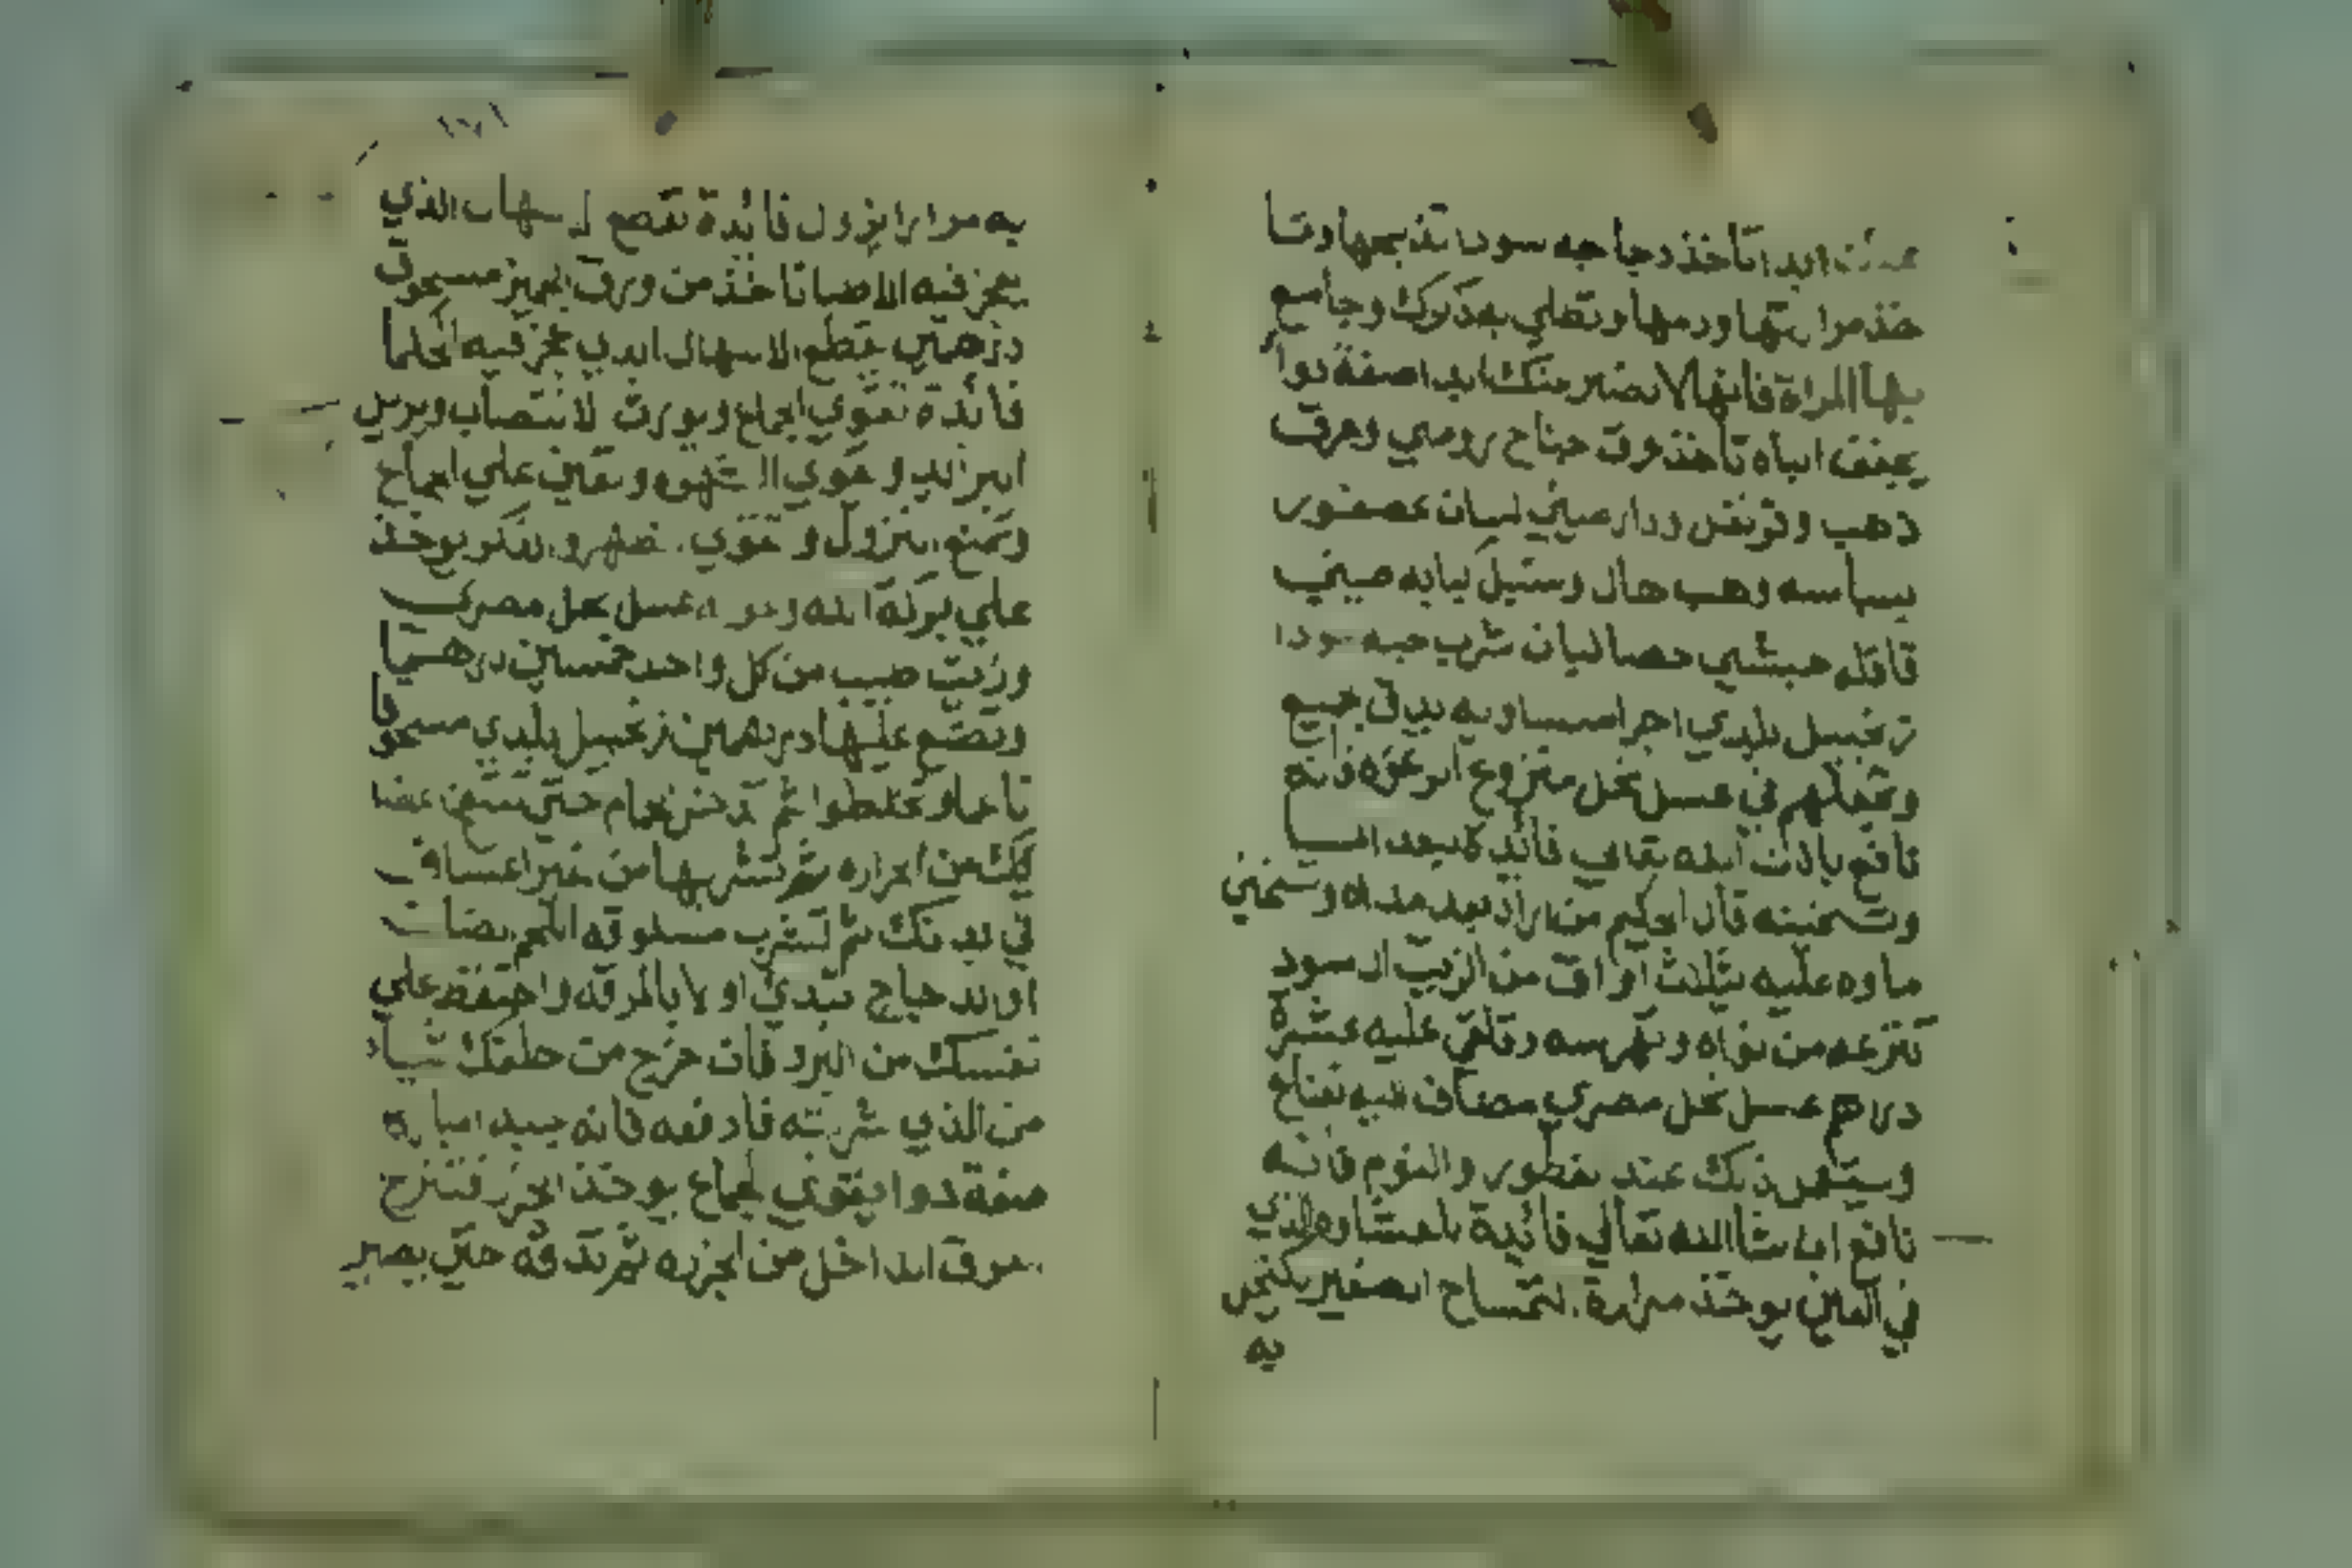 عنك ابدا تأخذ دجاجه سودا تذبحها وتا
خذ مرارتها ودمها وتطلي به ذكرك وجامع
بها المراة فانها لا تصبر عنك ابدا صفة دوا
ينفق الباه تأخذ عرق جناح رومي وعرق
ذهب وقرنفل ودار صيني لسان عصفور
بسباسه وهب هال وسنبل كبابه صيني
قاقله حبشي حصا لبان شرب حبه سودا
زنجبيل بلدي اجرا متساويه يدق جميع
وتعجنهم في عسل نحل منزوع الرغوه فانه
نافع باذن الله تعالي فائدة لتبعيد المـــا
وتسخينته قال الحكيم من اراد تبعيد ماه وتسخين
ماوه عليه بثلاث اواق من الزبيب الاسود
تنزعه من نواه وتهرسه وتلقي عليه عشرة
دراهم عسل نحل مصري مضاف فيه نعناع
وستعمل ذلك عند فطور والنوم فانه
نافع ان شا الله تعالي فائدة بالمشاوه الذي
في العين يوخذ مرارة التمساح الصغير يكتحل
به
١٧١
به مرارا يزول فائدة تقطع الاسهال الذي
يعجز فيه الاطبا تاخذ من ورق الجميز مسحوق
درهمين يقطع الاسهال الذي عجز فيه الحكما
فائدة تقوي الجماع ويورث الانتصاب ويزيل
ابراند وتقوي الشهوه وتعين علي الجماع
وتمنع النزول وتقوي الظهر والذكر يوخذ
علي بركة الله وعونه عسل نحل مصري
وزيت طيب من كل واحد خمسين درهمـــا
وتضع عليها درهمين زنجبيل بلدي مسحوقا
ناعما وتخلطوا ثم تدخل الحمام حتي تسخن اعضا
يك من الحراره ثم تشربها من غير اعساف
في بدنك ثم تشرب مسلوقه اللحم الضان
او الدجاج تبدي اولا بالمرقه واحتفظ علي
نفسك من البرد فان خرج من حلمتك شيا
من الذي شربته فاد فعه فانه جيد امباره
صفة دوا يقوي الجماع يوخذ الجزر فتنزع
عروق الداخل من الجزره ثم تدقه حتي يصير